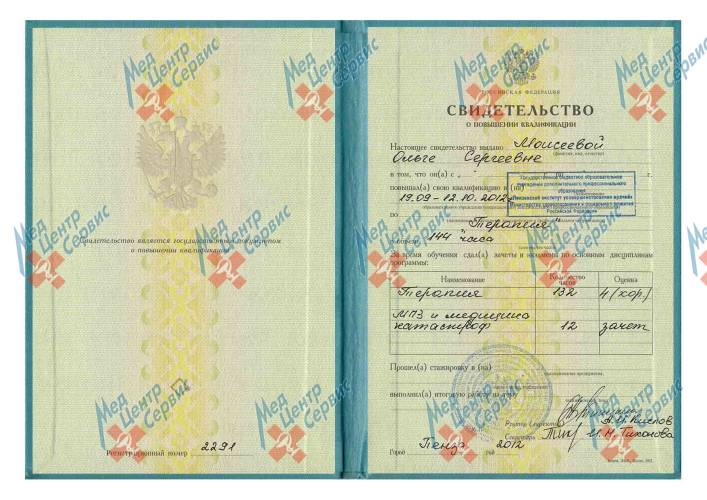 Свидетельство является государственным документом
о повышении квалификации
Регистрационный номер 2291
РОССИЙСКАЯ ФЕДЕРАЦИЯ
СВИДЕТЕЛЬСТВО
О ПОВЫШЕНИИ КВАЛИФИКАЦИИ
Настоящее свидетельство выдано Моисеевой
Ольге Сергеевне
в том, что он(а) с г.
Государственное бюджетное образовательное
учреждение дополнительного профессионального
образования
«Пензенский институт усовершенствования врачей»
Министерства здравоохранения и социального развития
Российской Федерации
повышал(а) свою квалификацию в (на)
19.09 - 12.10.2012
по "Терапия"
в объеме 144 часа
За время обучения сдал(а) зачеты и экзамены по основным дисциплинам
программы:
Наименование Количество часов Оценка
Терапия 132 4 (хор.)
МПЗ и медицина
катастроф 12 зачет
Прошел(а) стажировку в (на)
выполнил(а) итоговую работу на тему
Ректор (директор) А.И. Кислов
Секретарь И.Н. Тихонова
Город Пенза год 2012
Мед Центр Сервис